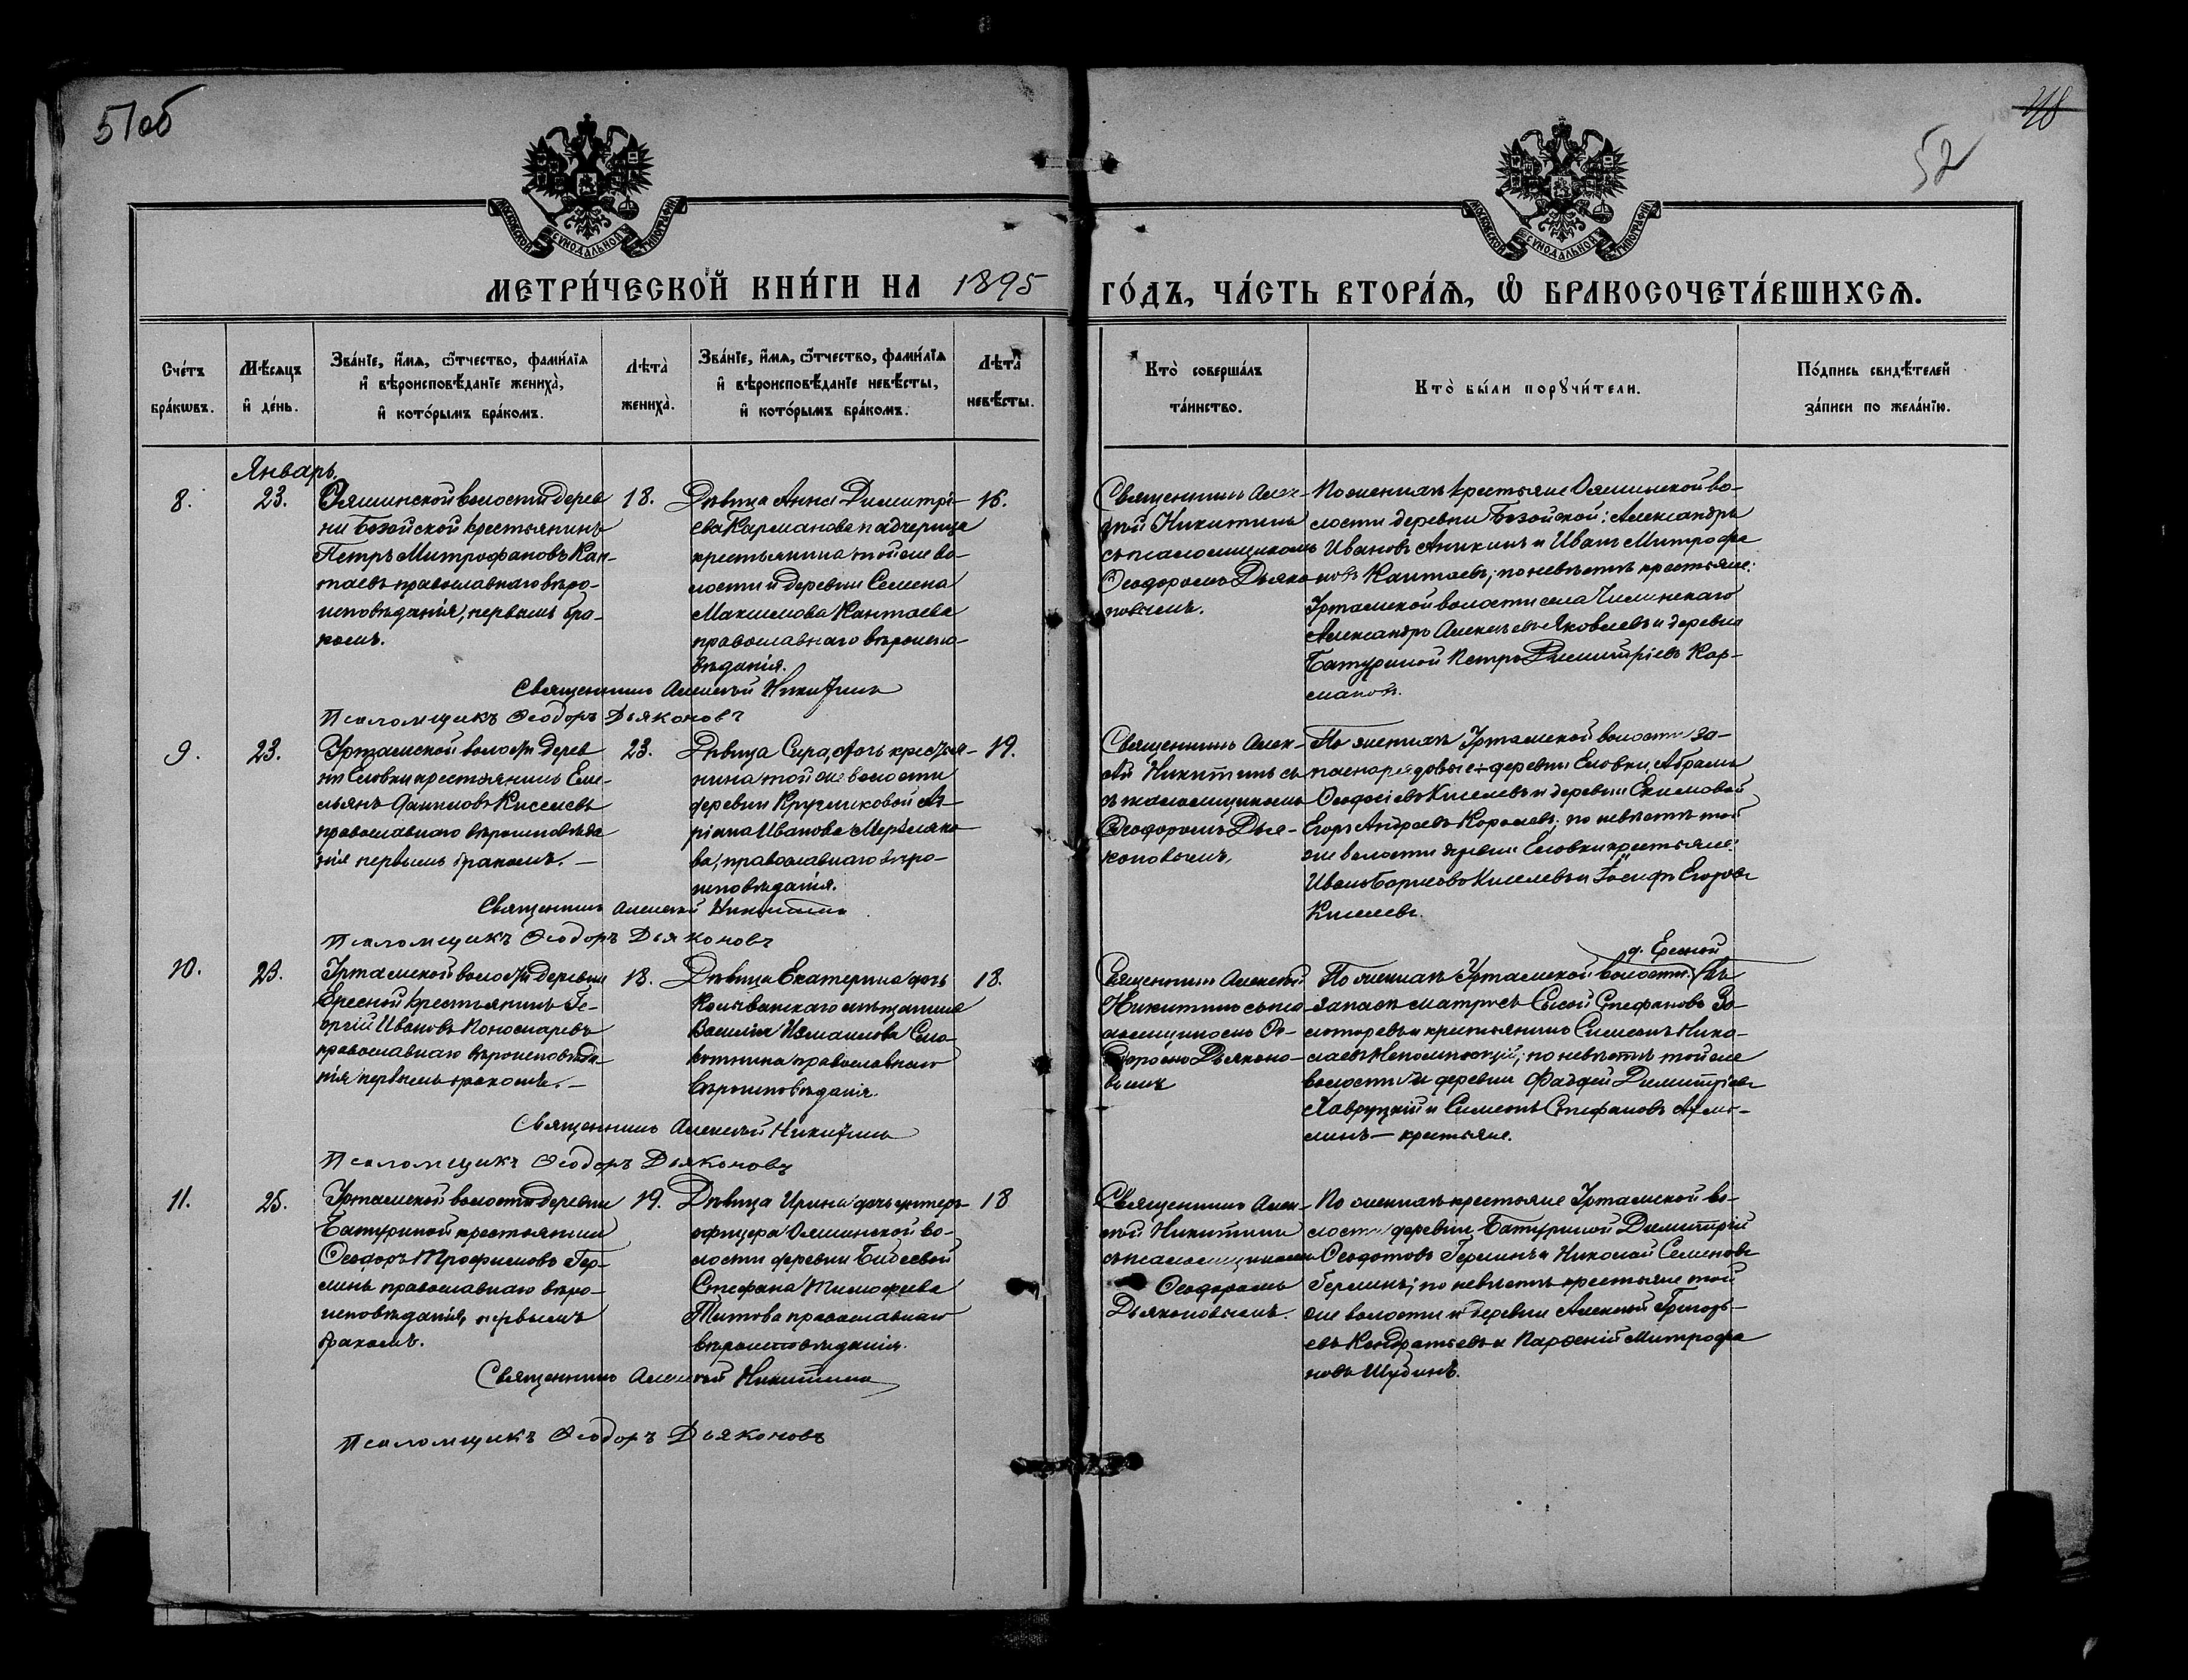 51об
48
52
МОСКОВСКОЙ СѴНОДАЛЬНОЙ ТИПОГРАФІИ
МОСКОВСКОЙ СѴНОДАЛЬНОЙ ТИПОГРАФІИ
МЕТРИ́ЧЕСКОЙ КНИ́ГИ НА 1895
ГО́ДЪ, ЧА́СТЬ ВТОРА́Ѧ, Ѽ БРАКОСОЧЕТА́ВШИХСѦ.
Сче́тъ
бра́кѡвъ.
Мѣ́сяцъ
и҆ де́нь.
Зва́нїе, и҆́мѧ, ѻ҆́тчество, фами́лїѧ
и҆ вѣроисповѣ́данїе жениха̀,
и҆ кото́рымъ бра́комъ.
Лѣ́та
жениха̀.
Зва́нїе, и҆́мѧ, ѻ҆́тчество, фами́лїѧ
и҆ вѣроисповѣ́данїе невѣ́сты,
и҆ кото́рымъ бра́комъ.
Лѣ́та
невѣ́сты.
Кто̀ соверша́лъ
та́инство.
Кто̀ бы́ли порꙋчи́тели.
По́дпись свидѣ́телей
за́писи по жела́нїю.
Январь
8.
23.
Ояшинской волости дерев
ни Базойской крестьянинъ
Петръ Митрофановъ Кан-
таевъ православнаго вѣро-
исповѣданія, первымъ бра-
комъ.
18.
Дѣвица Анна Димитрі-
ева Карманова падчерица
крестьянина той же во-
лости и деревни Семена
Максимова Кантаева
православнаго вѣроиспо-
вѣданія.
16.
Священникъ Алек-
сѣй Никитинъ
съ псаломщикомъ
Ѳеодоромъ Дьяко-
новымъ.
По женихѣ крестьяне Ояшинской во-
лости деревни Базойской: Александръ
Ивановъ Аникинъ и Иванъ Митрофа
новъ Кантаевъ; по невѣстѣ крестьяне:
Уртамской волости села
Александръ Алексѣевъ Яковлевъ и деревни
Батуриной Петръ Димитріевъ Кар-
мановъ.
Священникъ Алексѣй Никитинъ
Псаломщикъ Ѳеодоръ Дьяконовъ
9.
23.
Уртамской волости дерев
ни Еловки крестьянинъ Еме-
льянъ Киселевъ
православнаго вѣроисповѣда
нія первымъ бракомъ. —
23.
Дѣвица Сира, дочь крестья-
нина той же волости
деревни Кругликовой Ад-
ріана Иванова Мерзляко
ва, православнаго вѣро-
исповѣданія.
19.
Священникъ Алек-
сѣй Никитинъ съ
псаломщикомъ
Ѳеодоромъ Дья-
коновымъ.
По женихѣ Уртамской волости за-
пасно-рядовые деревни Еловки Абрамъ
Ѳеодосіевъ Киселевъ и деревни Екимовой
Егоръ Андреевъ Королевъ; по невѣстѣ той
же волости деревни Еловки крестьяне:
Иванъ Борисовъ Киселевъ и Іосифъ Егоровъ
Киселевъ.
Священникъ Алексѣй Никитинъ
Псаломщикъ Ѳеодоръ Дьяконовъ
10.
23.
Уртамской волости деревни
Ересной крестьянинъ Ге-
оргій Ивановъ Пономаревъ
православнаго вѣроисповѣда
нія первымъ бракомъ. —
18.
Дѣвица Екатерина дочь
Колыванскаго мѣщанина
Василія Измаилова Смо-
котнина православнаго
вѣроисповѣданія.
18.
Священникъ Алексѣй
Никитинъ съ пса
ломщикомъ Ѳе-
одоромъ Дьяконо-
вымъ
д. Ересной
По женихѣ Уртамской волости въ
запасѣ матросъ Сысой Стефановъ Зо-
лотаревъ и крестьянинъ Симеонъ Нико-
лаевъ Непомнющій; по невѣстѣ той же
волости и деревни Фаддей Димитріевъ
Лаврущкій и Симеонъ Стефановъ
— крестьяне.
Священникъ Алексѣй Никитинъ
Псаломщикъ Ѳеодоръ Дьяконовъ
11.
25.
Уртамской волости деревни
Батуриной крестьянинъ
Ѳеодоръ Трофимовъ Гер-
линъ православнаго вѣро-
исповѣданія, первымъ
бракомъ.
19.
Дѣвица Ирина дочь унтеръ-
офицера Ояшинской во-
лости деревни Бибеевой
Стефана Тимофеева
Титова православнаго
вѣроисповѣданія.
18
Священникъ Алек-
сѣй Никитинъ
съ псаломщикомъ
Ѳеодоромъ
Дьяконовымъ.
По женихѣ крестьяне Уртамской во-
лости деревни Батуриной Димитрій
Ѳеодотовъ Герлинъ и Николай Семеновъ
Герлинъ; по невѣстѣ крестьяне той
же волости и деревни Алексѣй Григорь-
евъ Кондратьевъ и Парѳеній Митрофа
новъ Шубинъ.
Священникъ Алексѣй Никитинъ
Псаломщикъ Ѳеодоръ Дьяконовъ